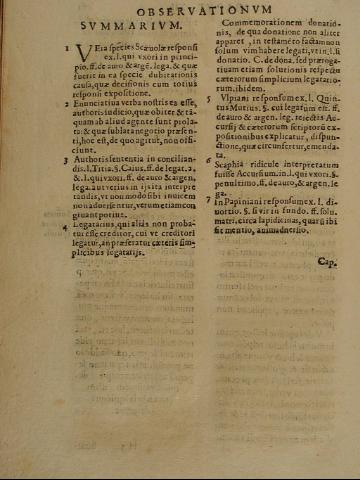 OBSERVATIONVM
SVMMARIVM.
1 VEra species Scæuolæ responsi
ex.l. qui vxori in princi-
pio. ff. de auro & argē. lega. & quæ
fuerit in ea specie dubitationis
causa, quæ decisionis cum totius
responsi expositione.
2 Enunciatiua verba nostra ea esse,
authoris iudicio, quæ obiter & tā-
quam ab aliud agente sunt prola-
ta: & quæ sublata negotio præsen-
ti, hoc est, de quo agitur, non offi-
ciunt.
3 Authoris sententia in concilian-
dis. l. Titia. §. Caius. ff. de legat. 2,
&. l. qui vxori. ff. de auro & argen,
lega. aut verius in ijs ita interpre
tandis, vt non modo sibi inuicem
non aduersentur, verum etiam con
gruant potius.
4 Legatarius, qui aliâs non proba-
tur esse creditor, cui vt creditori
legatur, an præferatur cæteris sim-
plicibus legatarijs.
Commemorationem donatio-
nis, de qua donatione non aliter
apparet, in testamēto factam non
solum vim habere legati, vt in. l. si
donatio. C. de dona. sed præroga-
tiuam etiam solutionis respectu
cæterorum simplicium legatario-
rum. ibidem.
5 Vlpiani responsum ex. l. Quin-
tus Mutius. §. est legatum est. ff.
de auro & argen. leg. reiectis Ac-
cursij & cæterorum scriptorū ex-
positionibus explicatur, dispun-
ctione, quæ circunfertur, emenda-
ta.
6 Scaphia ridicule interpretatum
fuisse Accursium. in. l. qui vxori. §.
penultimo. ff. de auro, & argen. le
ga.
7 In Papiniani responsum ex. l. di-
uortio. §. si vir in fundo. ff. solu.
matri. circa lapidicinas, quarū ibi
fit mentio, animaduersio.
Cap.